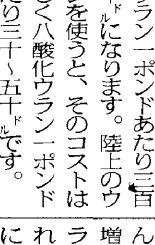 ラン一ポンドあたり三百
ドルになります。陸上のウ
を使うと、そのコストは
く八酸化ウラン一ポンド
たり三十〜五十ドルです。
ん
増
ラ
れ
に